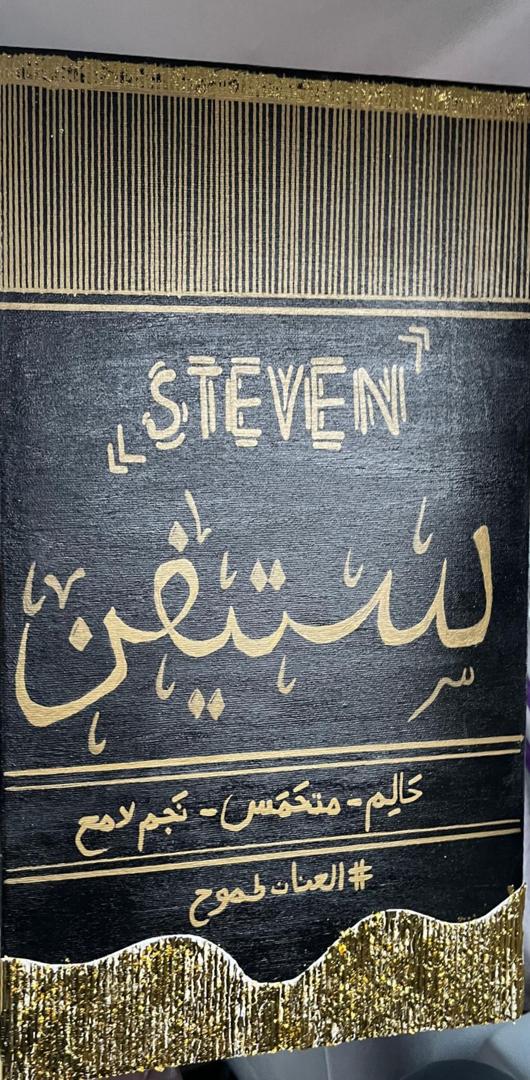 STEVEN
ستيفن
حَالِم - متحَمَس - نَجم لامع
طموح